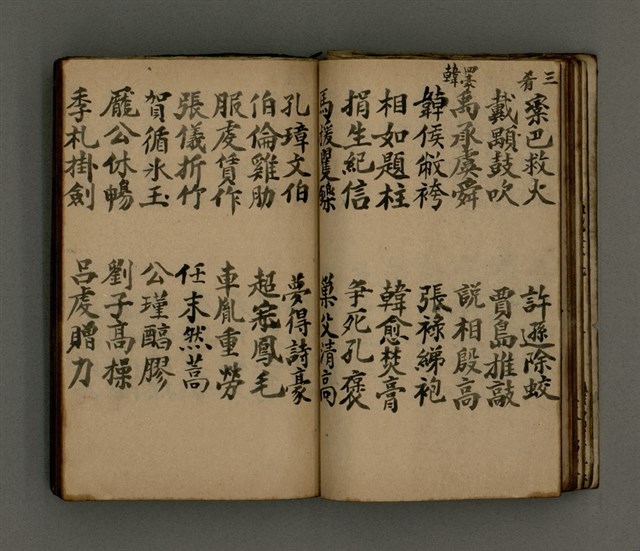 三肴
欒巴救火　許遜除蛟
戴顒鼓吹　賈島推敲
禹承虞舜　說相殷高
韓侯敝袴　張祿綈袍
相如題柱　韓愈焚膏
捐生紀信　爭死孔褒
馬援矍鑠　巢父清高
孔璋文伯　夢得詩豪
伯倫雞肋　超宗鳳毛
服虔賃作　車胤重勞
張儀折竹　任末然蒿
賀循氷玉　公瑾醇膠
龐公休暢　劉子高操
季札掛劍　呂虔贈刀